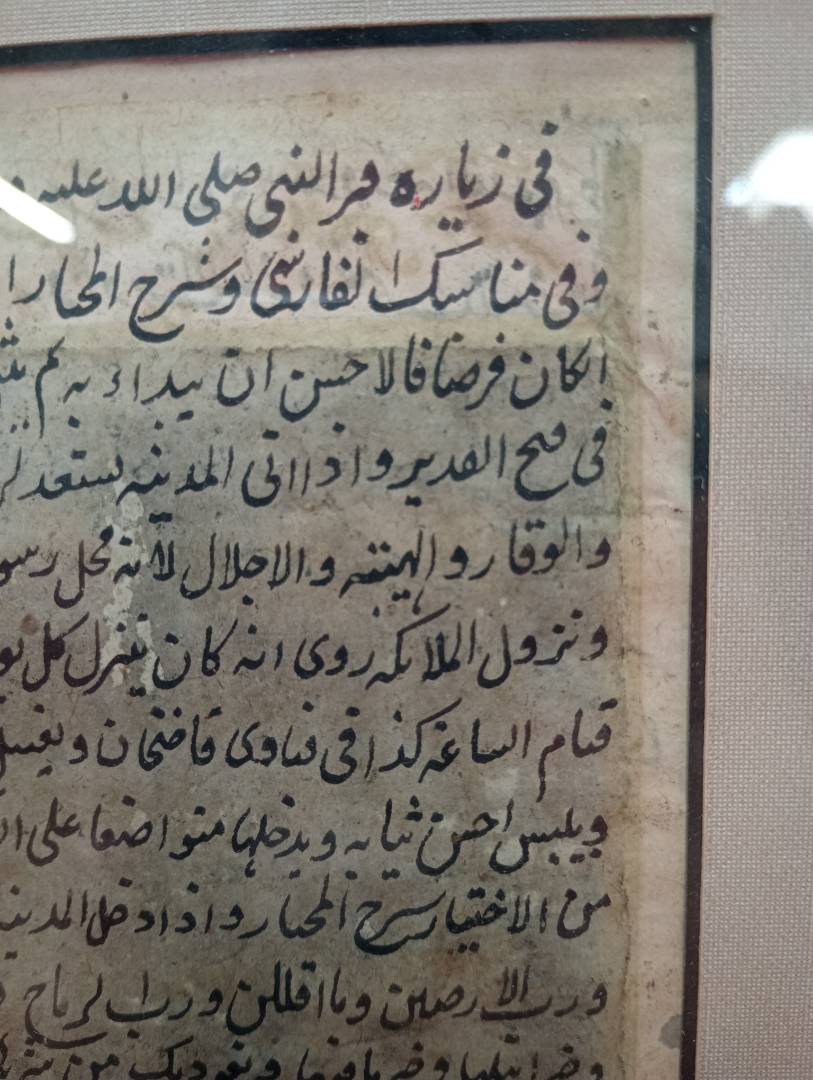 فى زياره قبر النبى صلى الله عليه
وفى مناسك الفارسى وشرح المختار ا
ان كان فرضا فالاحسن ان يبداء به ثم يثنى
فى فتح القدير واذا اتى المدينه يستعد
والوقار والهيبه والاجلال لانه محل رسو
ونزول الملائكه روى انه كان ينزل كل يو
قيام الساعه كذا فى فتاوى قاضيخان ويغتسل
ويلبس احسن ثيابه ويدخلها متواضعا على
من الاختيار شرح المختار واذا دخل المدينه
ورب الارضين وما اقللن ورب الرياح
ونعوذ بك من